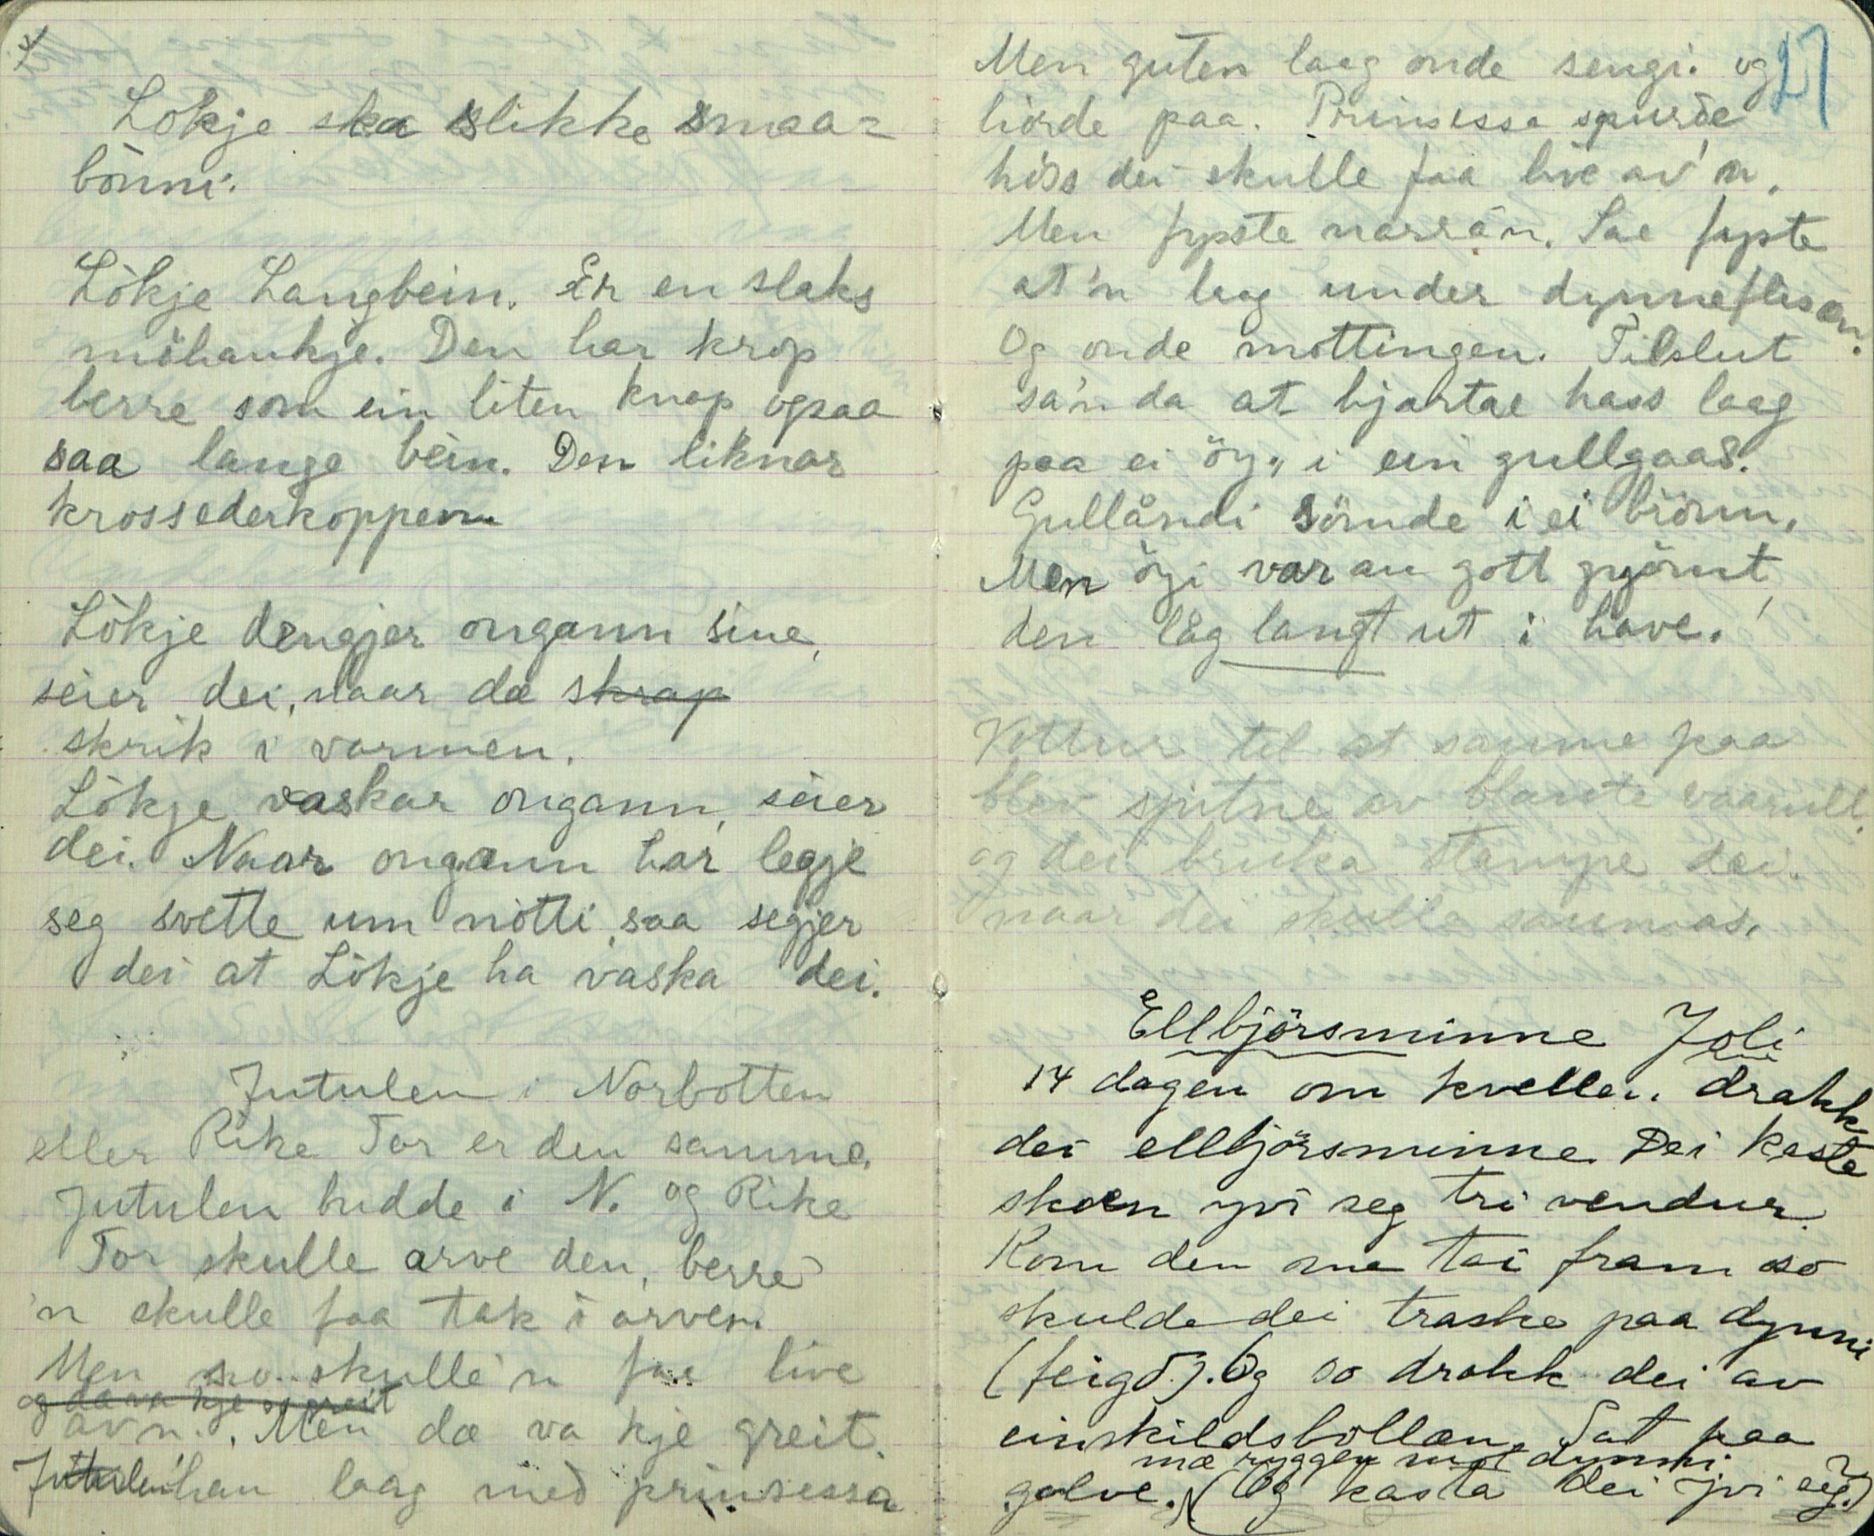 Lökje ska slikke smaa=
bönni.
Lökje Langbein. Er en slaks
möhankje. Den har krop
berre som ein liten knap ogsaa
saa lange bein. Den liknar
krossederkoppen.
Lökje dengjer ongann sine,
seier dei, naar dæ skrap
skrik i varmen.
Lökje vaskar ongann, seier
dei. Naar ongann har legje
seg svette um nötti, saa segjer
dei at Lökje ha vaska dei.
Jutulen i Norbotten
eller Rike Tor er den samme.
Jutulen budde i N. og Rike
Tor skulle arve den, berre
'n skulle faa tak i arven.
Men so skulle'n faa live
og da va kje so greit
av'n. Men dæ va kje greit.
Jutulen han laag med prinsessa
27
Men guten laag onde sengi og
hörde paa. Prinsessa spurde
höss dei skulle faa live av'n.
Men fyste narra'n. Sae fyste
at'n laag under dynneflisæn.
Og onde mottingen. Tilslut
sa'n da at hjartæ hass laag
paa ei öy, i ein gullgaas.
Gullåndi sömde i ei brönn.
Men öyi var an gott gjömt,
den låg langt ut i have.
Vottur til at saume paa
blei spitne av blaute vaarull.
og dei bruka stampe dei.
naar dei skulle saumas.
Ellbjörsminne Joli
14 dagen om kvellen. drakk
dei ellbjörsminne. Dei kasta
skoen yvi seg tri vendur.
Kom den me tai fram so
skulde dei traske paa dynni
(feigd.). Og so drakk dei av
einskildsbollan. Sat paa
mæ ryggen mot dynni.
golve. (Og kasta dei yvi seg?)